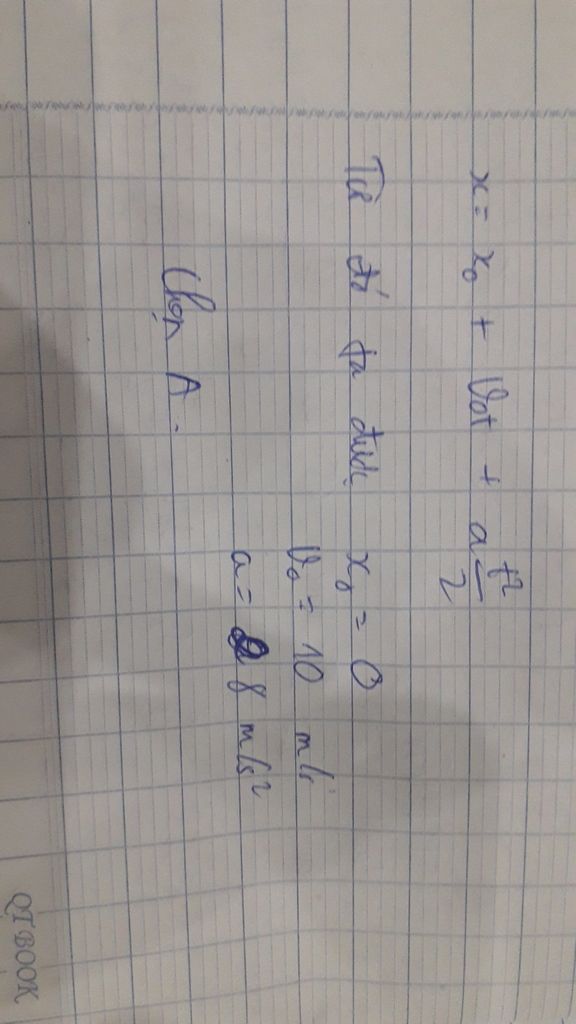 x = x₀ + v₀t + a t²/2
Từ đó ta được x₀ = 0
v₀ = 10 m/s
a = 8 m/s²
Chọn A.
QT BOOK